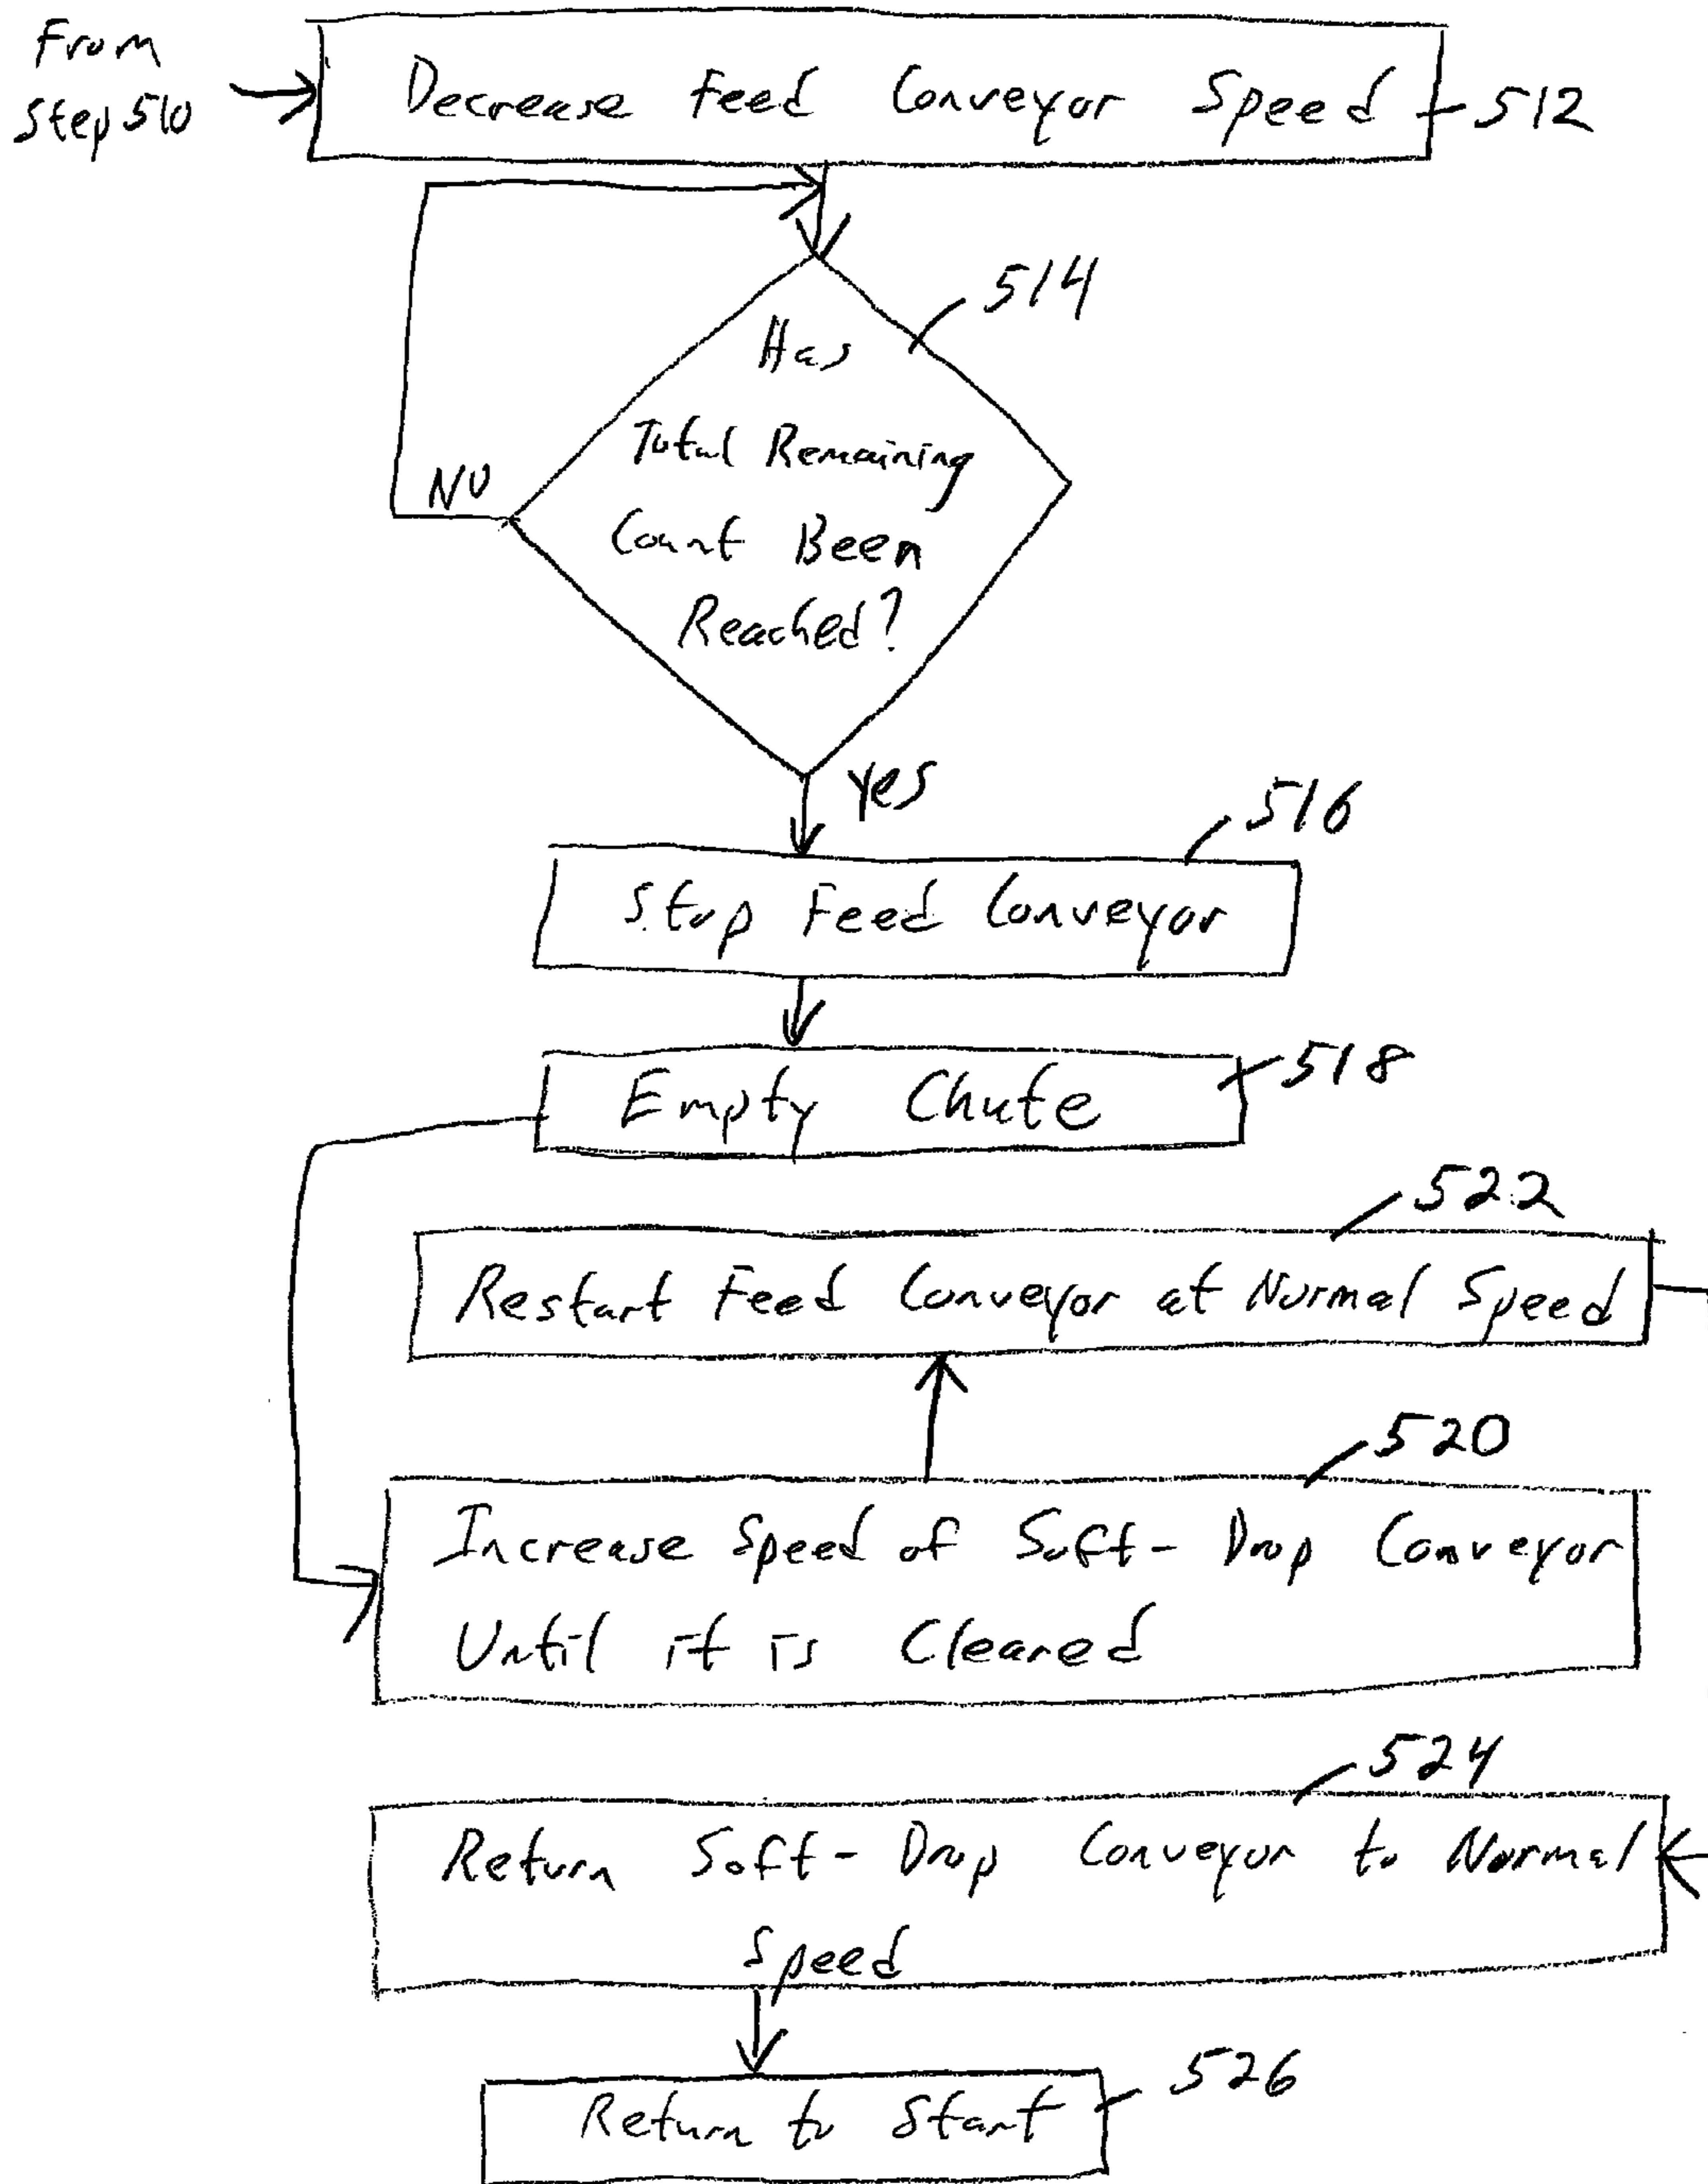 From
Step 510
Decrease Feed Conveyor Speed
512
514
Has
Total Remaining
Count Been
Reached?
NO
Yes
516
Stop Feed Conveyor
518
Empty Chute
522
Restart Feed Conveyor at Normal Speed
520
Increase Speed of Soft-Drop Conveyor
Until it is Cleared
524
Return Soft-Drop Conveyor to Normal
Speed
526
Return to Start